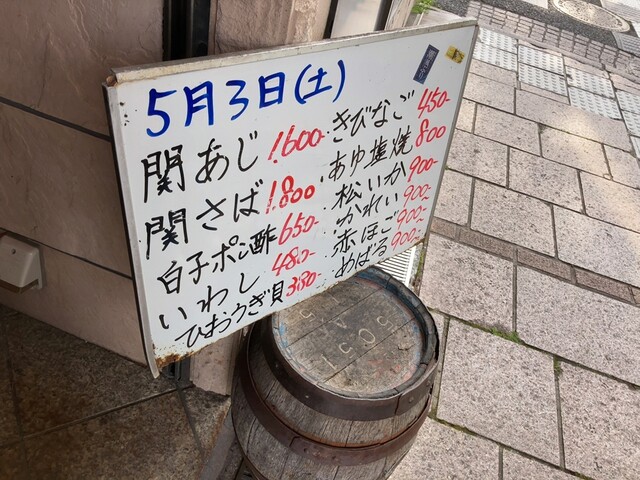 5月3日(土)
関あじ 1.600-
関さば 1.800
白子ポン酢 650-
いわし 480-
ひおうぎ貝 350-
きびなご 450-
あゆ塩焼 800
松いか 900-
かれい 900-
赤ほご 900-
めばる 900-
5051